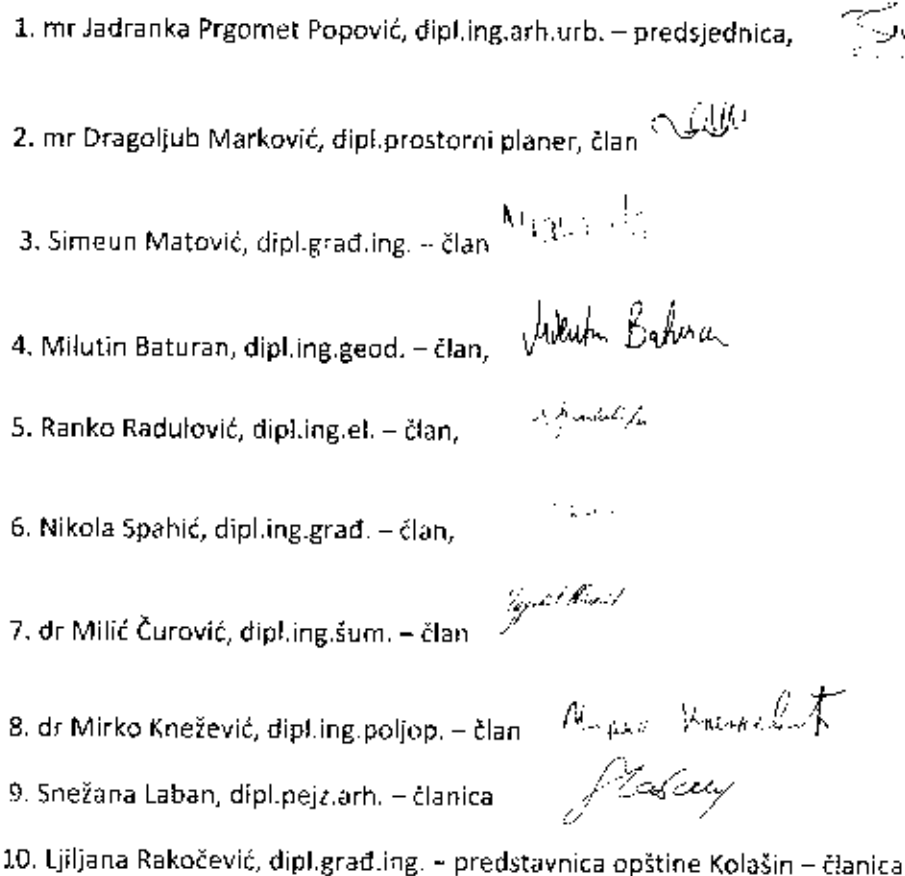 1. mr Jadranka Prgomet Popović, dipl.ing.arh.urb. – predsjednica,
2. mr Dragoljub Marković, dipl.prostorni planer, član
3. Simeun Matović, dipl.građ.ing. – član
4. Milutin Baturan, dipl.ing.geod. – član, Milutin Baturan
5. Ranko Radulović, dipl.ing.el. – član,
6. Nikola Spahić, dipl.ing.građ. – član,
7. dr Milić Čurović, dipl.ing.šum. – član
8. dr Mirko Knežević, dipl.ing.poljop. – član
9. Snežana Laban, dipl.pejz.arh. – članica
10. Ljiljana Rakočević, dipl.građ.ing. - predstavnica opštine Kolašin – članica